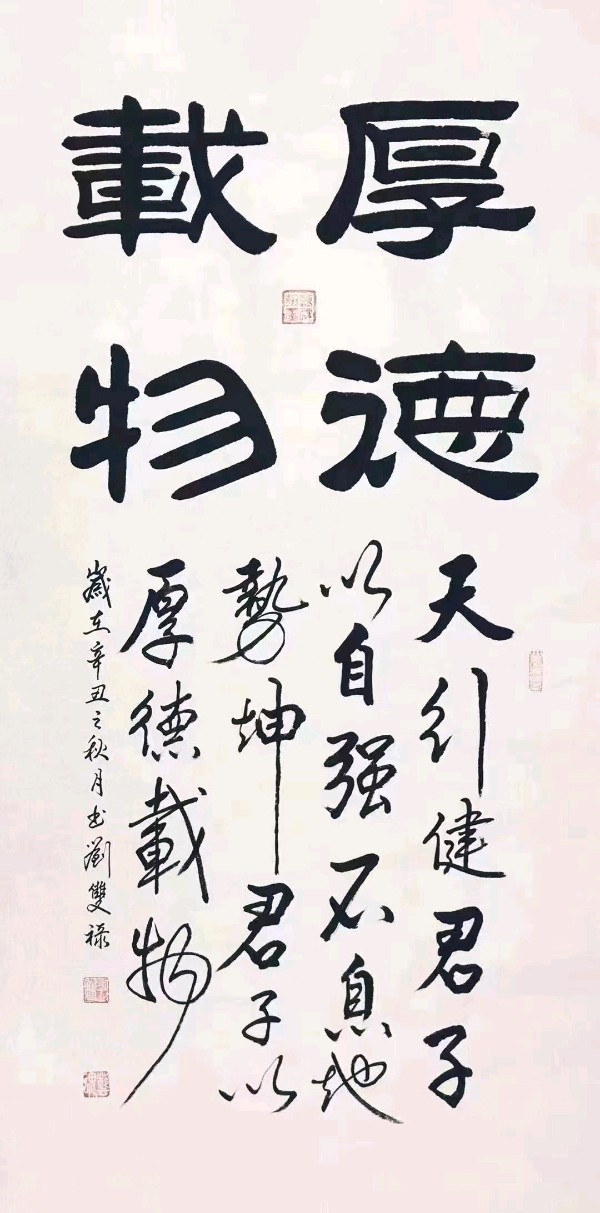 厚德
載物
天行健君子
以自强不息地
勢坤君子以
厚德載物
歲在辛丑之秋月書劉雙祿